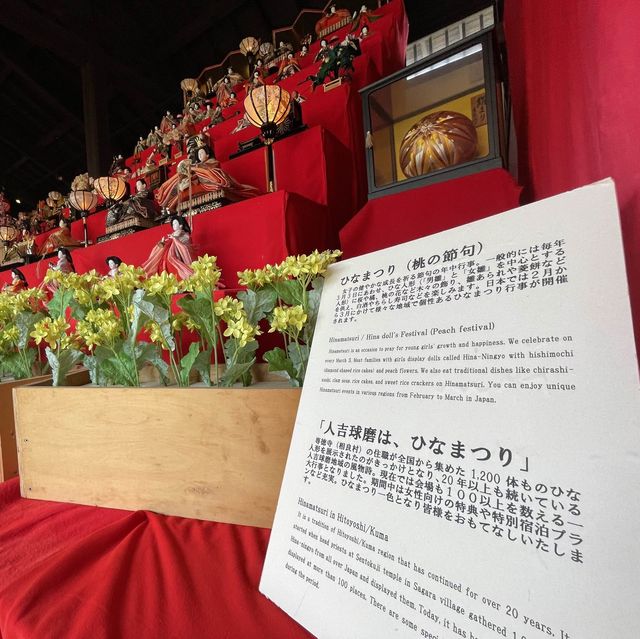 ひなまつり（桃の節句）
女子の健やかな成長を祈る節句の年中行事。一般的には毎年
3月3日にあわせ、ひな人形（「男雛」と「女雛」を中心とする
人形）に桜や橘、桃の花など木々の飾り、雛あられや菱餅など
を供え、白酒やちらし寿司などを楽しみます。日本では2月か
ら3月にかけて様々な地域で個性あるひなまつり行事が開催
されます。
Hinamatsuri / Hina doll's Festival (Peach festival)
Hinamatsuri is an occasion to pray for young girls' growth and happiness. We celebrate on
every March 3. Most families with girls display dolls called Hina-Ningyo with hishimochi
(diamond shaped rice cakes) and peach flowers. We also eat traditional dishes like chirashi-
zushi, clam soup, rice cakes, and sweet rice crackers on Hinamatsuri. You can enjoy unique
Hinamatsuri events in various regions from February to March in Japan.
「人吉球磨は、ひなまつり」
専徳寺（相良村）の住職が全国から集めた1,200体ものひな
人形を展示されたのがきっかけとなり、20年以上も続いている
人吉球磨地域の風物詩。現在では会場も１００以上を数える一
大行事となりました。期間中は女性向けの特典や特別宿泊プラ
ンなど充実。ひなまつり一色となり皆様をおもてなしいたしま
す。
Hinamatsuri in Hitoyoshi/Kuma
It is a tradition of Hitoyoshi/Kuma region that has continued for over 20 years. It
started when head priests at Sentokuji temple in Sagara village gathered
Hina-ningyo from all over Japan and displayed them. Today, it has
displayed at more than 100 places. There are some
during the period.